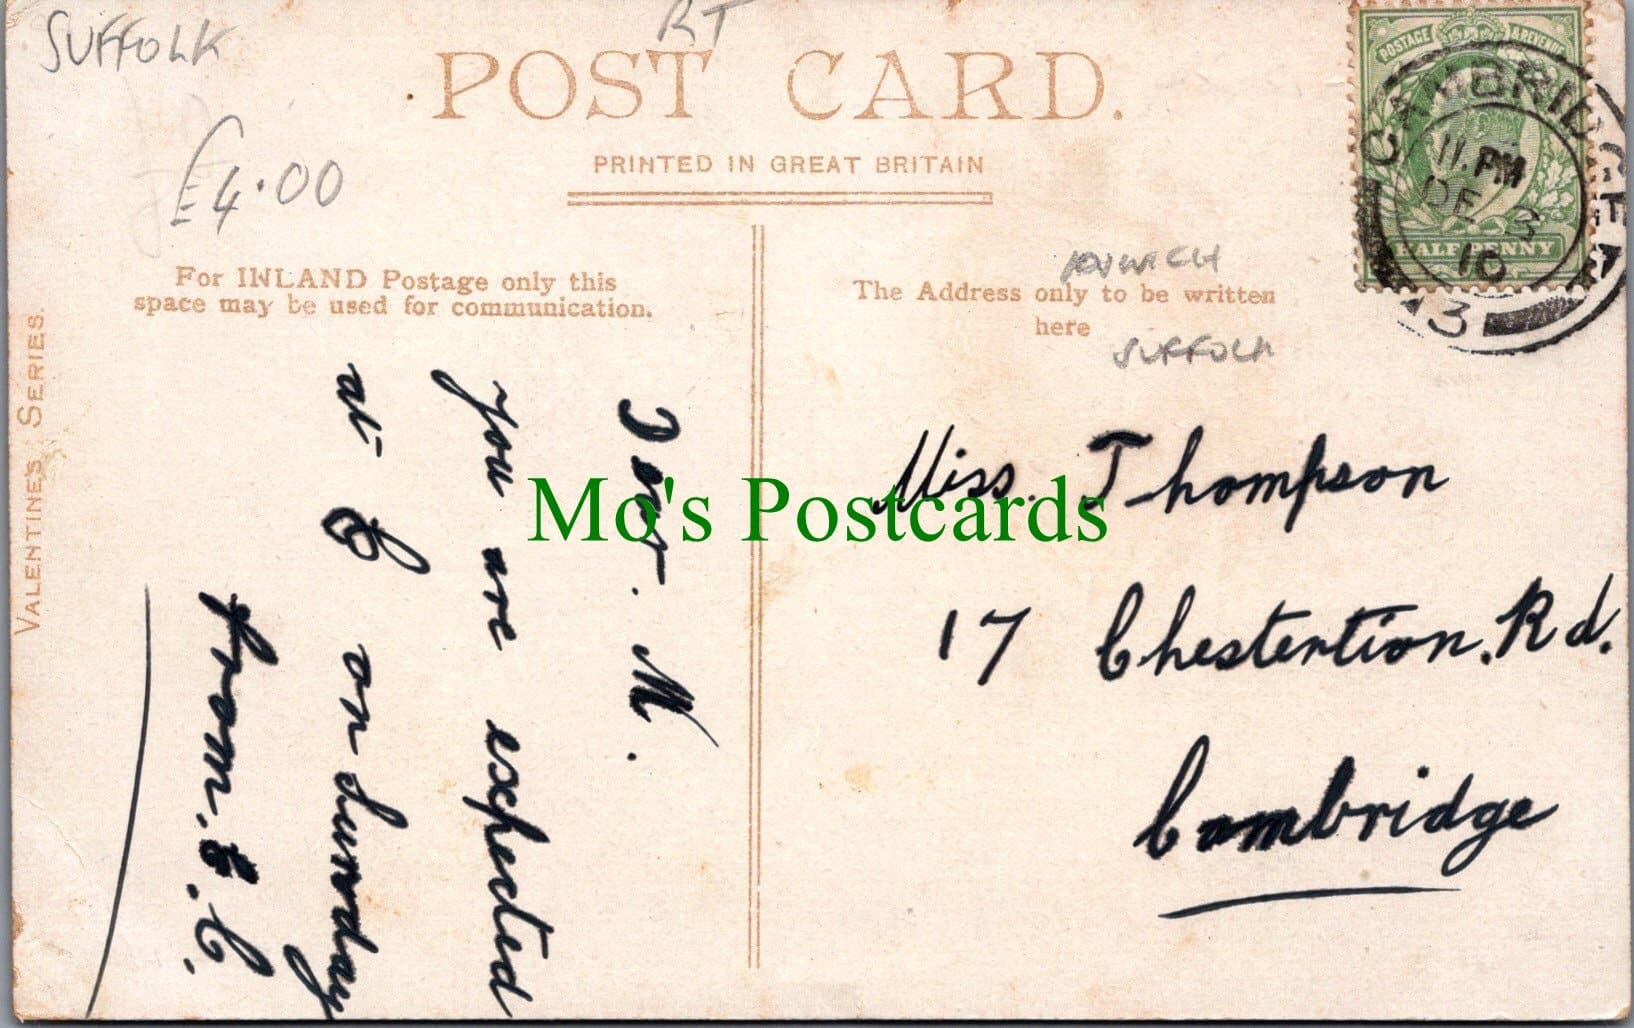 SUFFOLK
RT
POST CARD.
PRINTED IN GREAT BRITAIN
£4.00
POSTAGE & REVENUE
HALFPENNY
CAMBRIDGE
11. PM
DE 3
10
13
For INLAND Postage only this
space may be used for communication.
IPSWICH
The Address only to be written
here
SUFFOLK
VALENTINE'S SERIES.
Dear. M.
you are expected
at C on Sunday
from. E. C.
Miss. Thompson
17 Chestertion. Rd.
Cambridge
Mo's Postcards